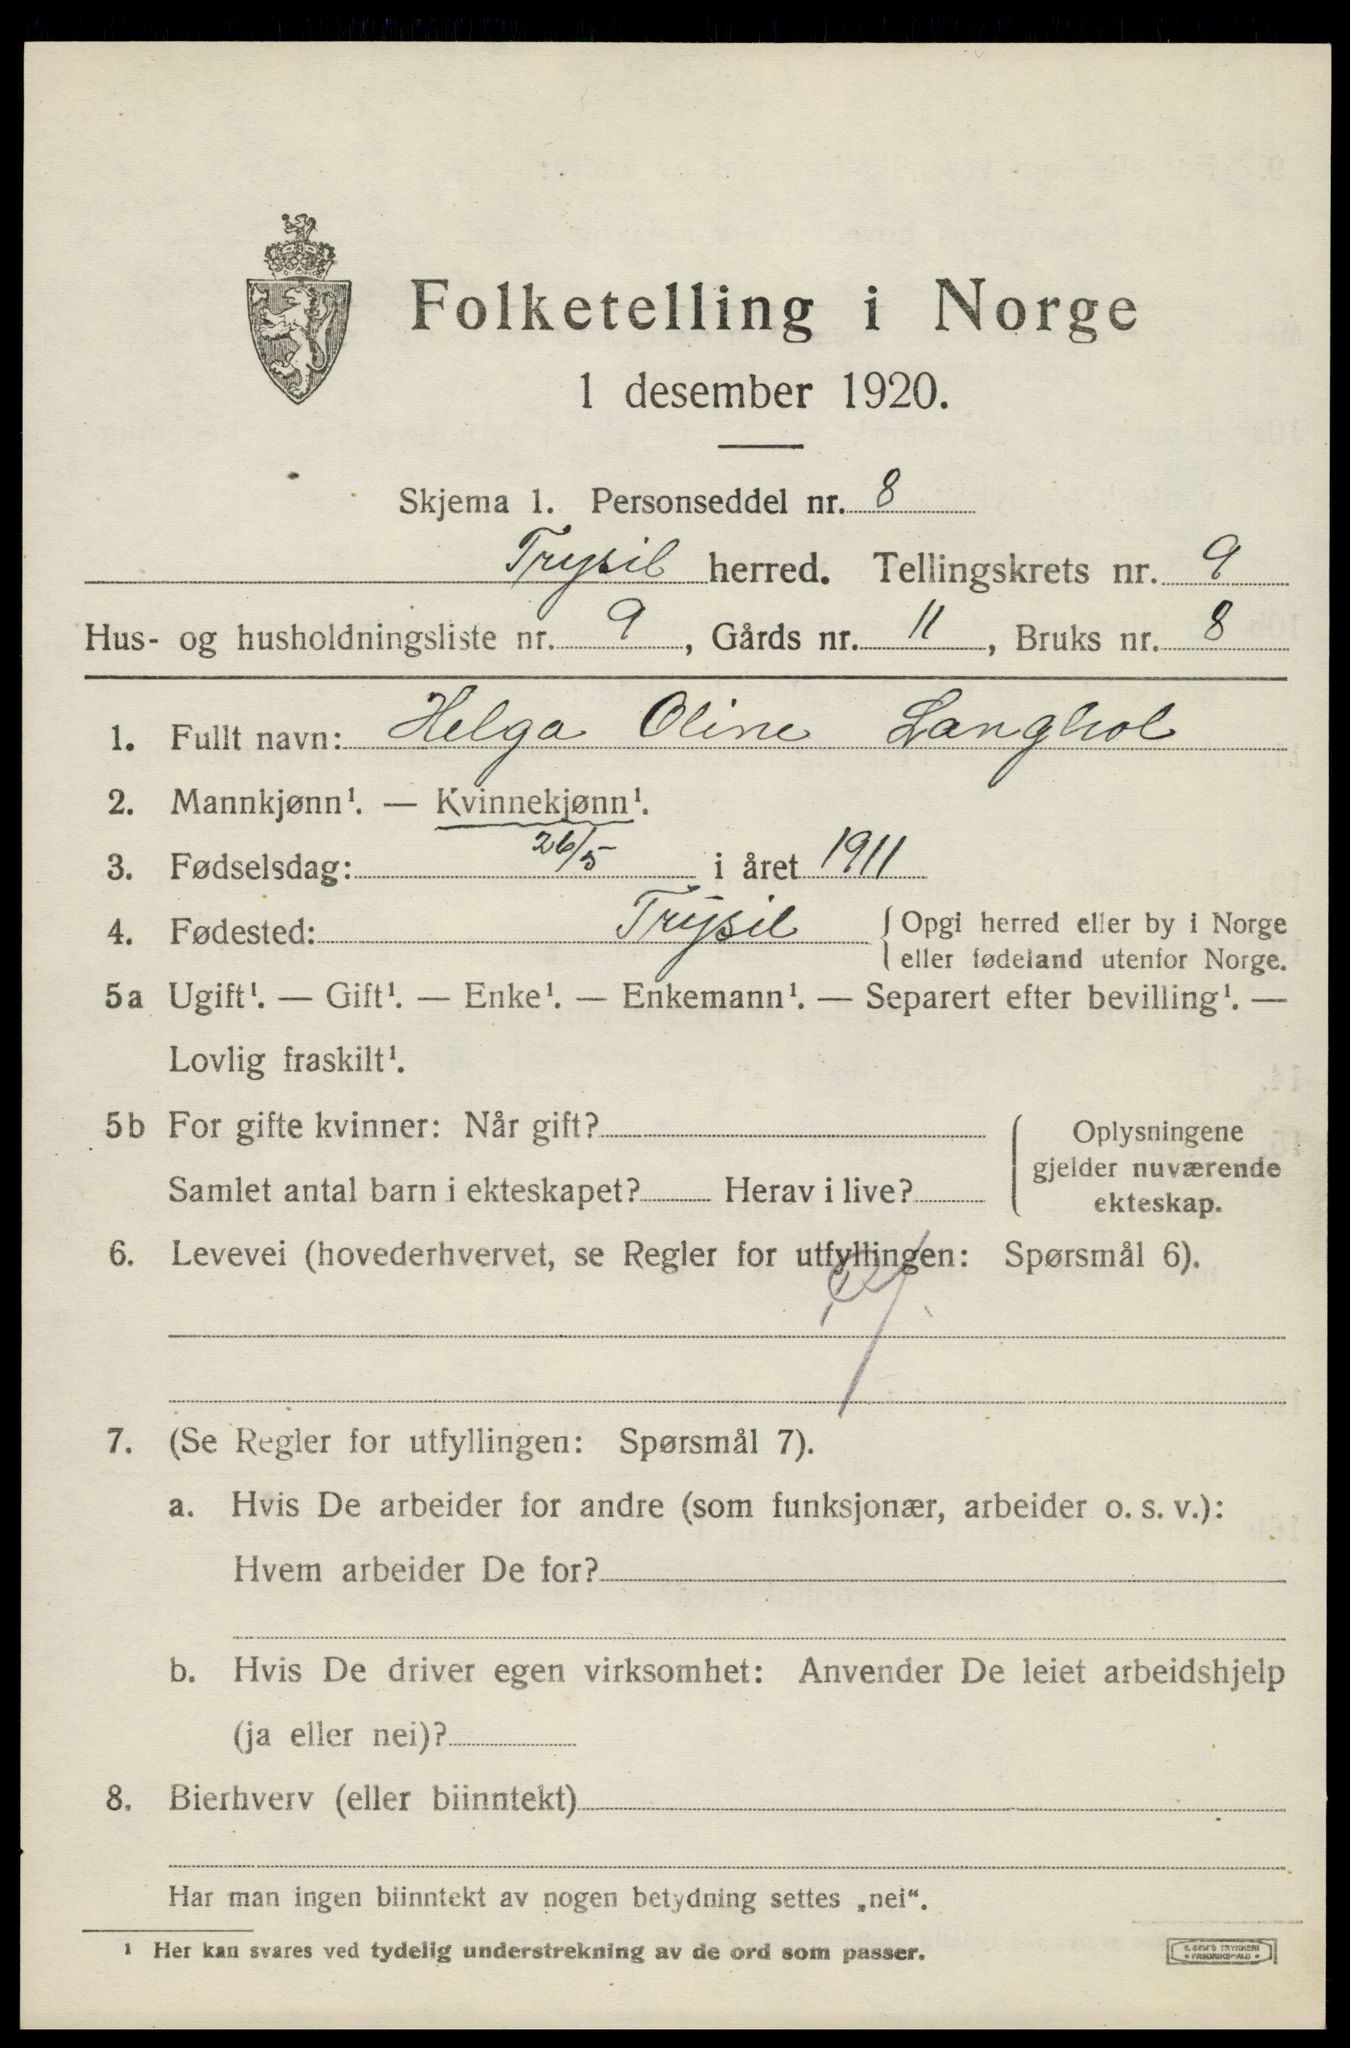 Folketelling i Norge
1 desember 1920.
Skjema 1. Personseddel nr. 8
Trysil herred. Tellingskrets nr. 9
Hus- og husholdningsliste nr. 9, Gårds nr. 11, Bruks nr. 8
1. Fullt navn: Helga Oline Langhol
2. Mannkjønn¹. — Kvinnekjønn¹.
3. Fødselsdag: 26/5 i året 1911
4. Fødested: Trysil { Opgi herred eller by i Norge
eller fødeland utenfor Norge.
5a Ugift¹. — Gift¹. — Enke¹. — Enkemann¹. — Separert efter bevilling¹. —
Lovlig fraskilt¹.
5b For gifte kvinner: Når gift?
Samlet antal barn i ekteskapet? Herav i live?
Oplysningene
gjelder nuværende
ekteskap.
6. Levevei (hovederhvervet, se Regler for utfyllingen: Spørsmål 6).
7. (Se Regler for utfyllingen: Spørsmål 7).
a. Hvis De arbeider for andre (som funksjonær, arbeider o. s. v.):
Hvem arbeider De for?
b. Hvis De driver egen virksomhet: Anvender De leiet arbeidshjelp
(ja eller nei)?
8. Bierhverv (eller biinntekt)
Har man ingen biinntekt av nogen betydning settes „nei“.
¹ Her kan svares ved tydelig understrekning av de ord som passer.
E. SEM'S TRYKKERI
FREDRIKSHALD